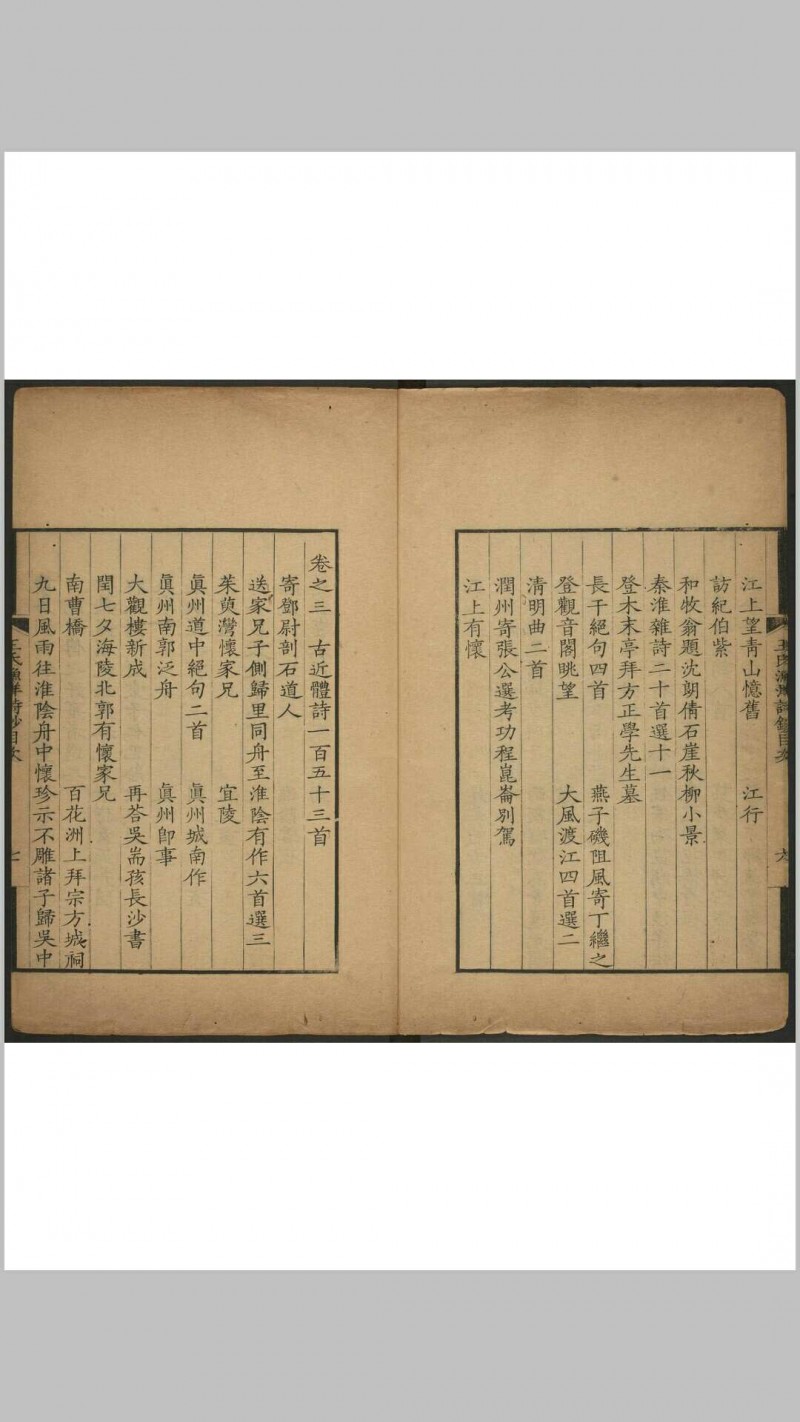 江上望青山憶舊　江行
訪紀伯紫
和牧翁題沈朗倩石崖秋柳小景
秦淮雜詩二十首選十一
登木末亭拜方正學先生墓
長干絕句四首　燕子磯阻風寄丁繼之
登觀音閣眺望　大風渡江四首選二
清明曲二首
潤州寄張公選考功程崑崙別駕
江上有懷
王氏漁洋詩鈔目次　七
卷之三　古近體詩一百五十三首
寄鄧尉剖石道人
送家兄子側歸里同舟至淮陰有作六首選三
茱萸灣懷家兄　宜陵
眞州道中絕句二首　眞州城南作
眞州南郭泛舟　眞州卽事
大觀樓新成　再荅吳耑孩長沙書
閏七夕海陵北郭有懷家兄
南曹橋　百花洲上拜宗方城祠
九日風雨往淮陰舟中懷珍示不雕諸子歸吳中